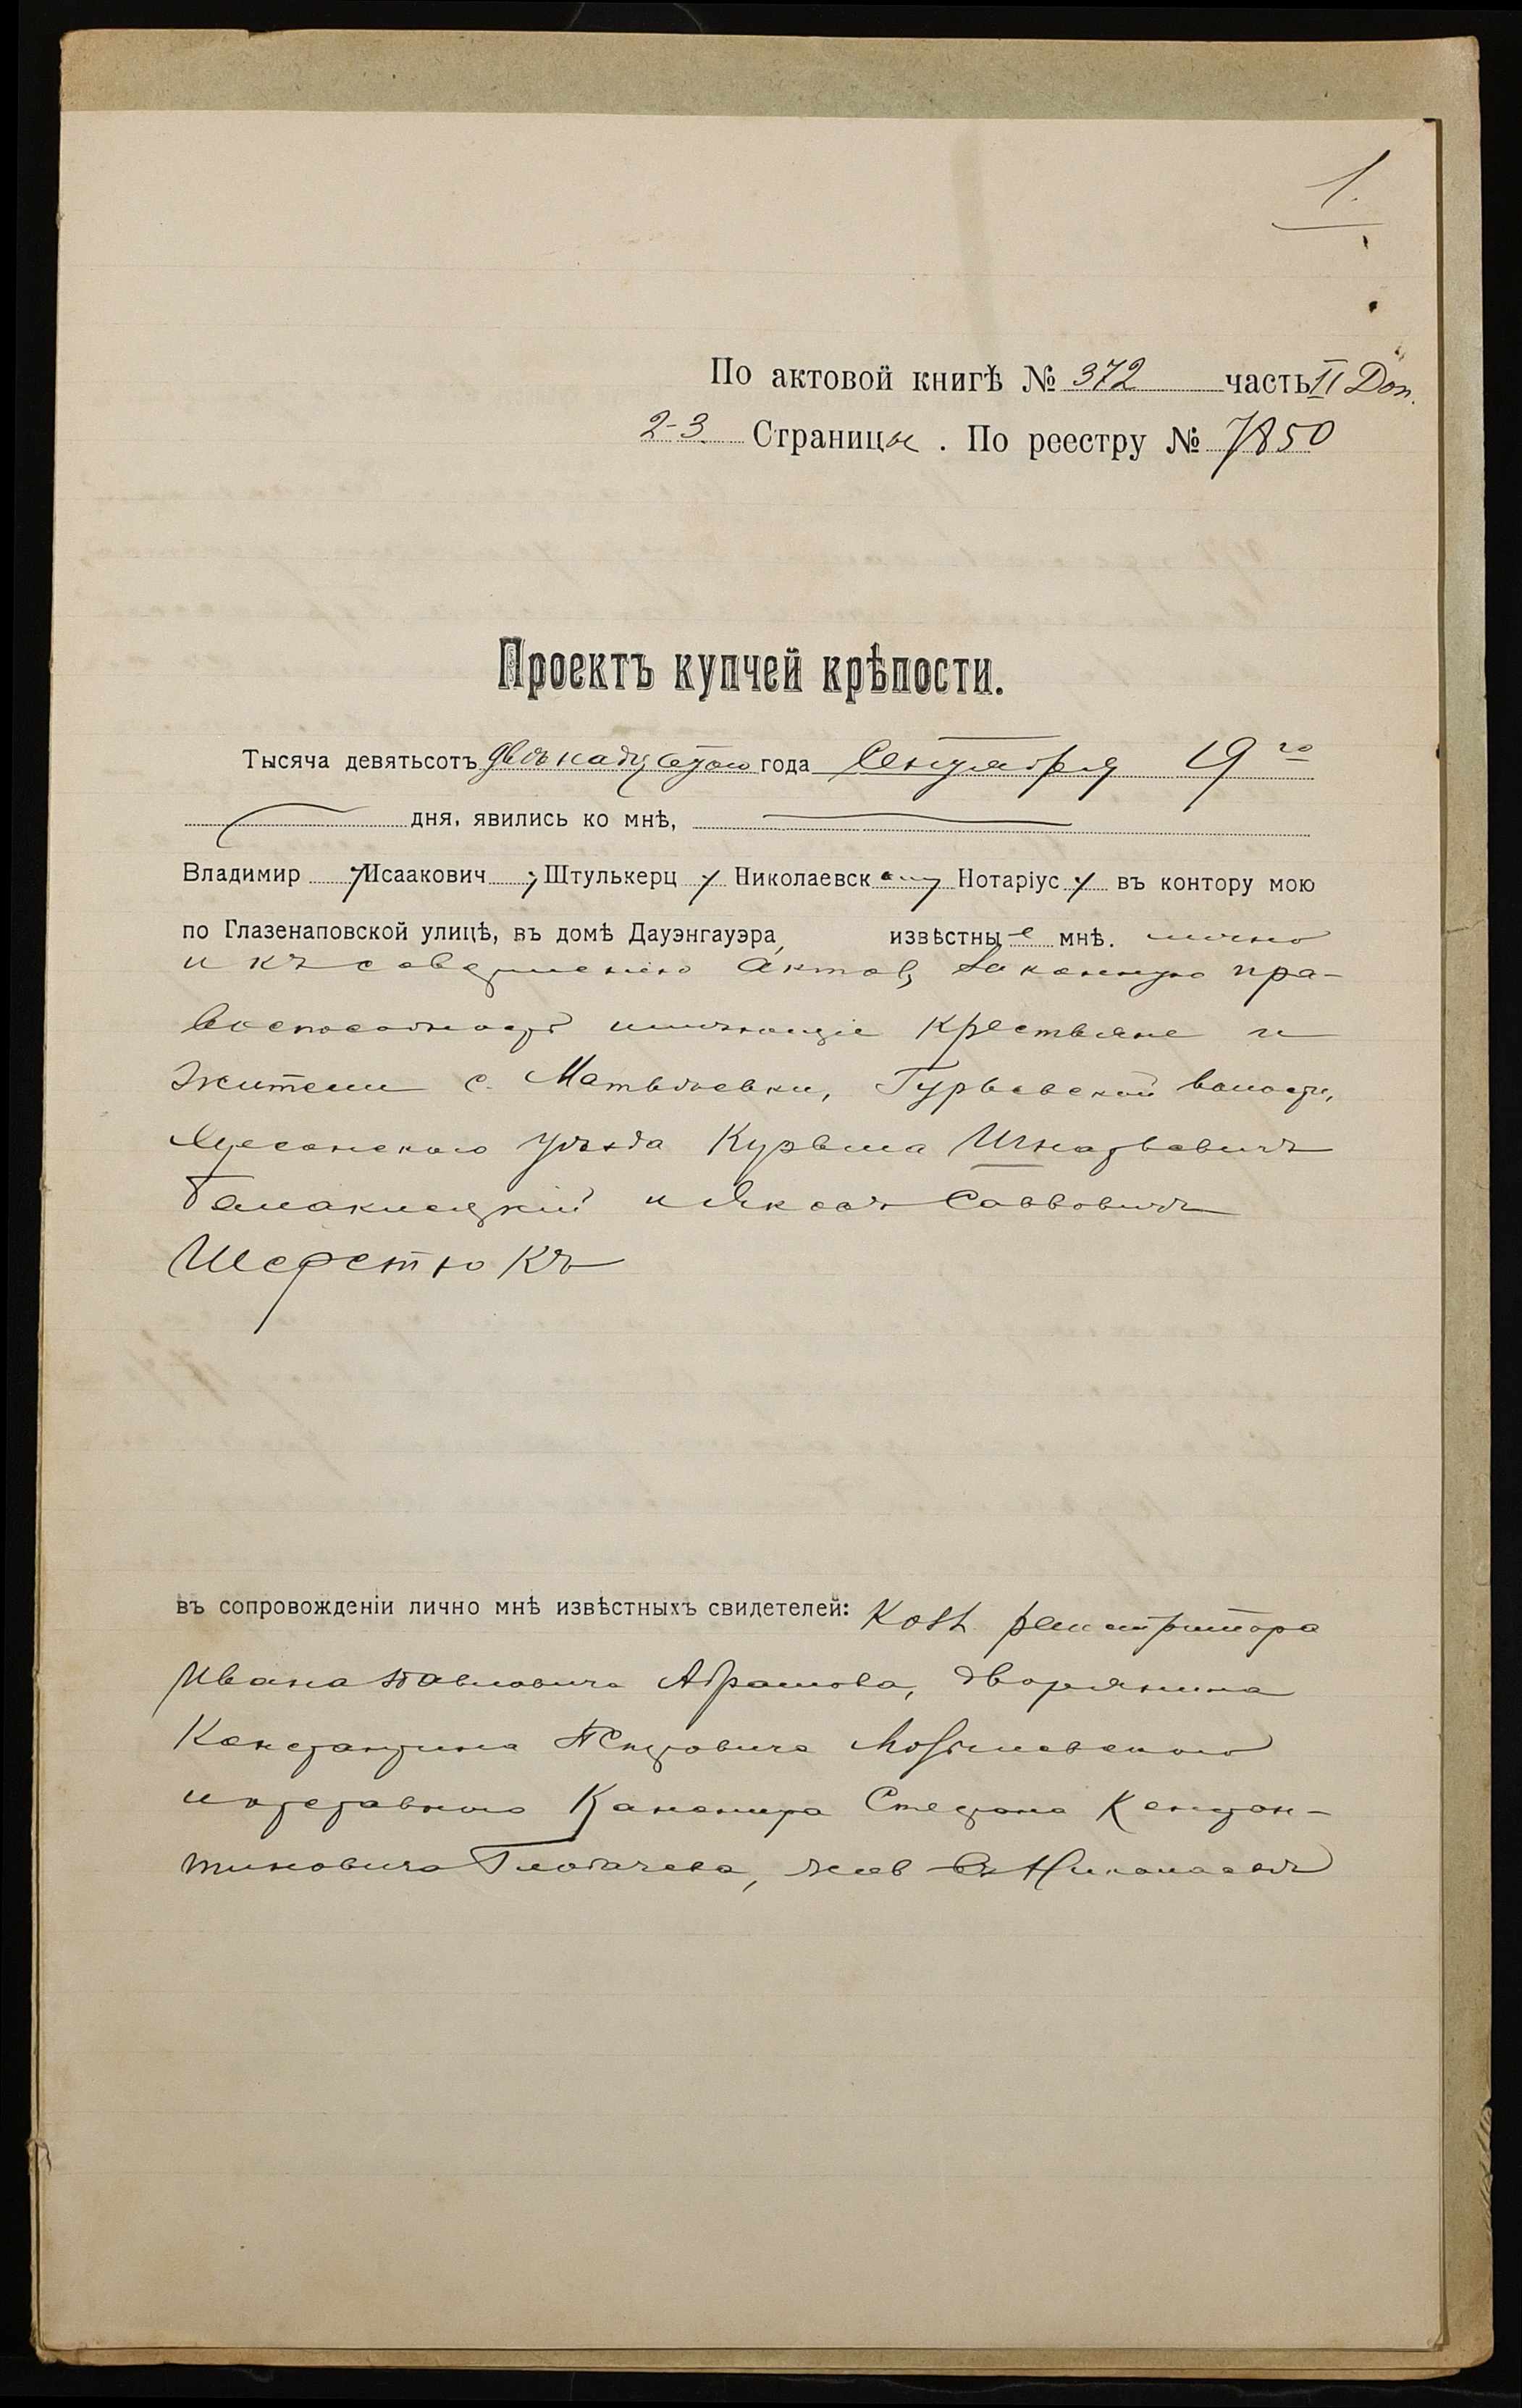 1.
По актовой книгѣ № 372 часть II Доп.
2-3 Страницы. По реестру № 7850
Проектъ купчей крѣпости.
Тысяча девятьсотъ двѣнадцатаго года Сентября 19го
дня, явились ко мнѣ,
Владимиру Исааковичу Штулькерцу Николаевскому Нотаріусу въ контору мою
по Глазенаповской улицѣ, въ домѣ Дауэнгауэра, извѣстные мнѣ. лично
и къ совершенію актовъ законную пра-
воспособность имѣющіе крестьяне и
жители с. Матвѣевки, Гурьевской волости,
Херсонскаго уѣзда Кузьма Игнатьевичъ
и Яковъ Савовичъ
Шерстюкъ
въ сопровожденіи лично мнѣ извѣстныхъ свидетелей: Колл. регистратора
Ивана Павловича Абрамова, дворянина
Константина Петровича
и отставного Канонира Степана Констан-
тиновича Глобачева, жив. въ Николаевѣ